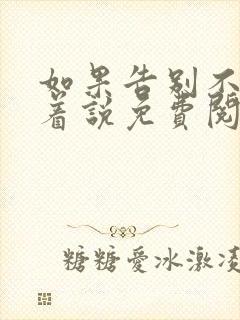 如果告别不
着說免費閱
糖糖愛冰激凌